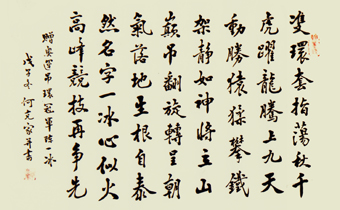 雙環套指蕩秋千
虎躍龍騰上九天
動勝猿猱攀鐵
架靜如神將立山
巔吊翻旋轉呈朝
氣落地生根自泰
然名字一冰心似火
高峰競技再爭先
贈奥運吊環冠軍陳一冰
戊子冬何克家并書